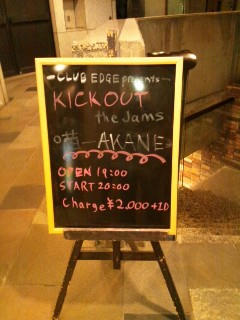 -CLUB EDGE presents-
KICKOUT
the Jams
-AKANE-
OPEN 19:00
START 20:00
Charge ¥2,000+1D